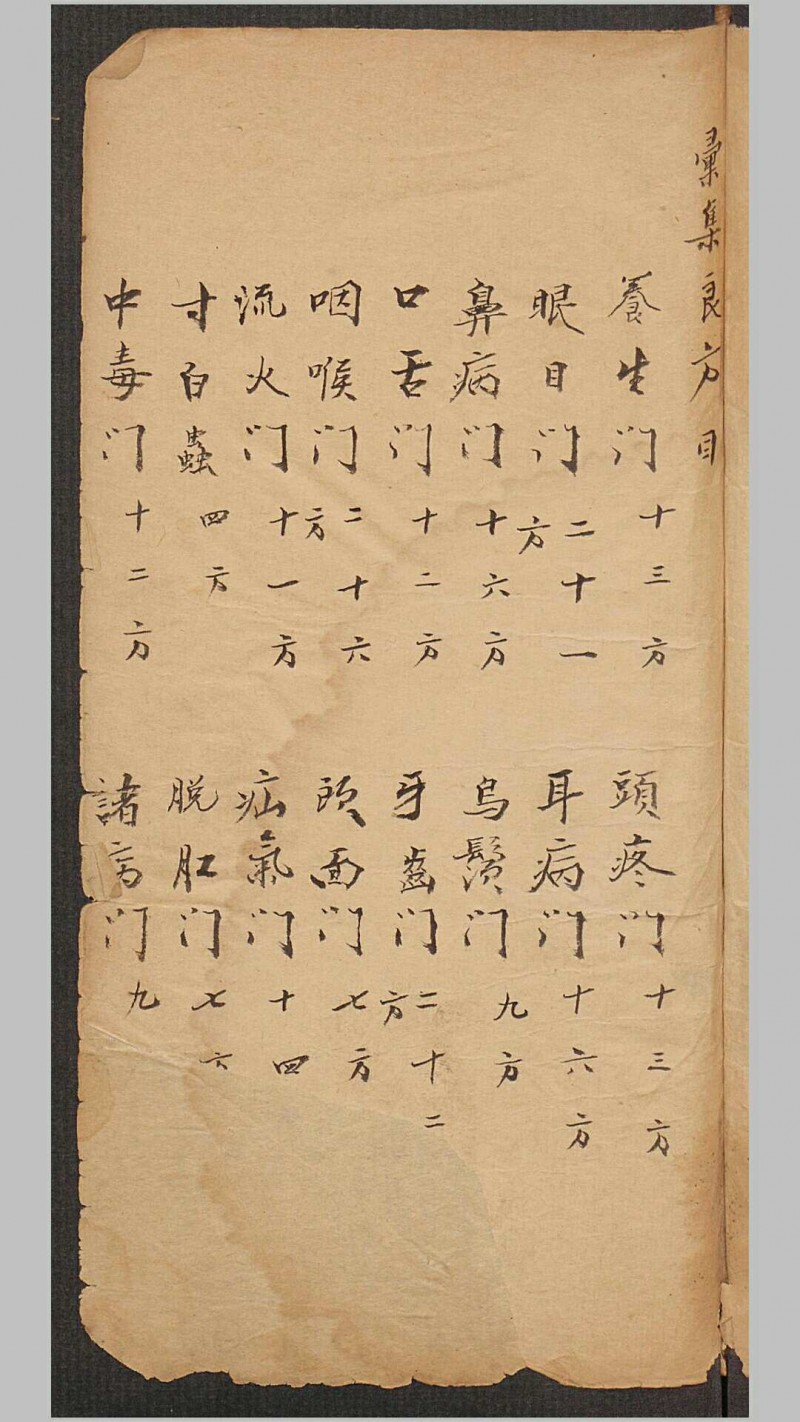 彙集良方目
養生门 十三方 頭疼门 十三方
眼目门 二十一方 耳病门 十六方
鼻病门 十六方 烏鬚门 九方
口舌门 十二方 牙齒门 二十二方
咽喉门 二十六方 頭面门 七方
流火门 十一方 疝氣门 十四
寸白蟲 四方 脱肛门 七方
中毒门 十二方 諸 门 九